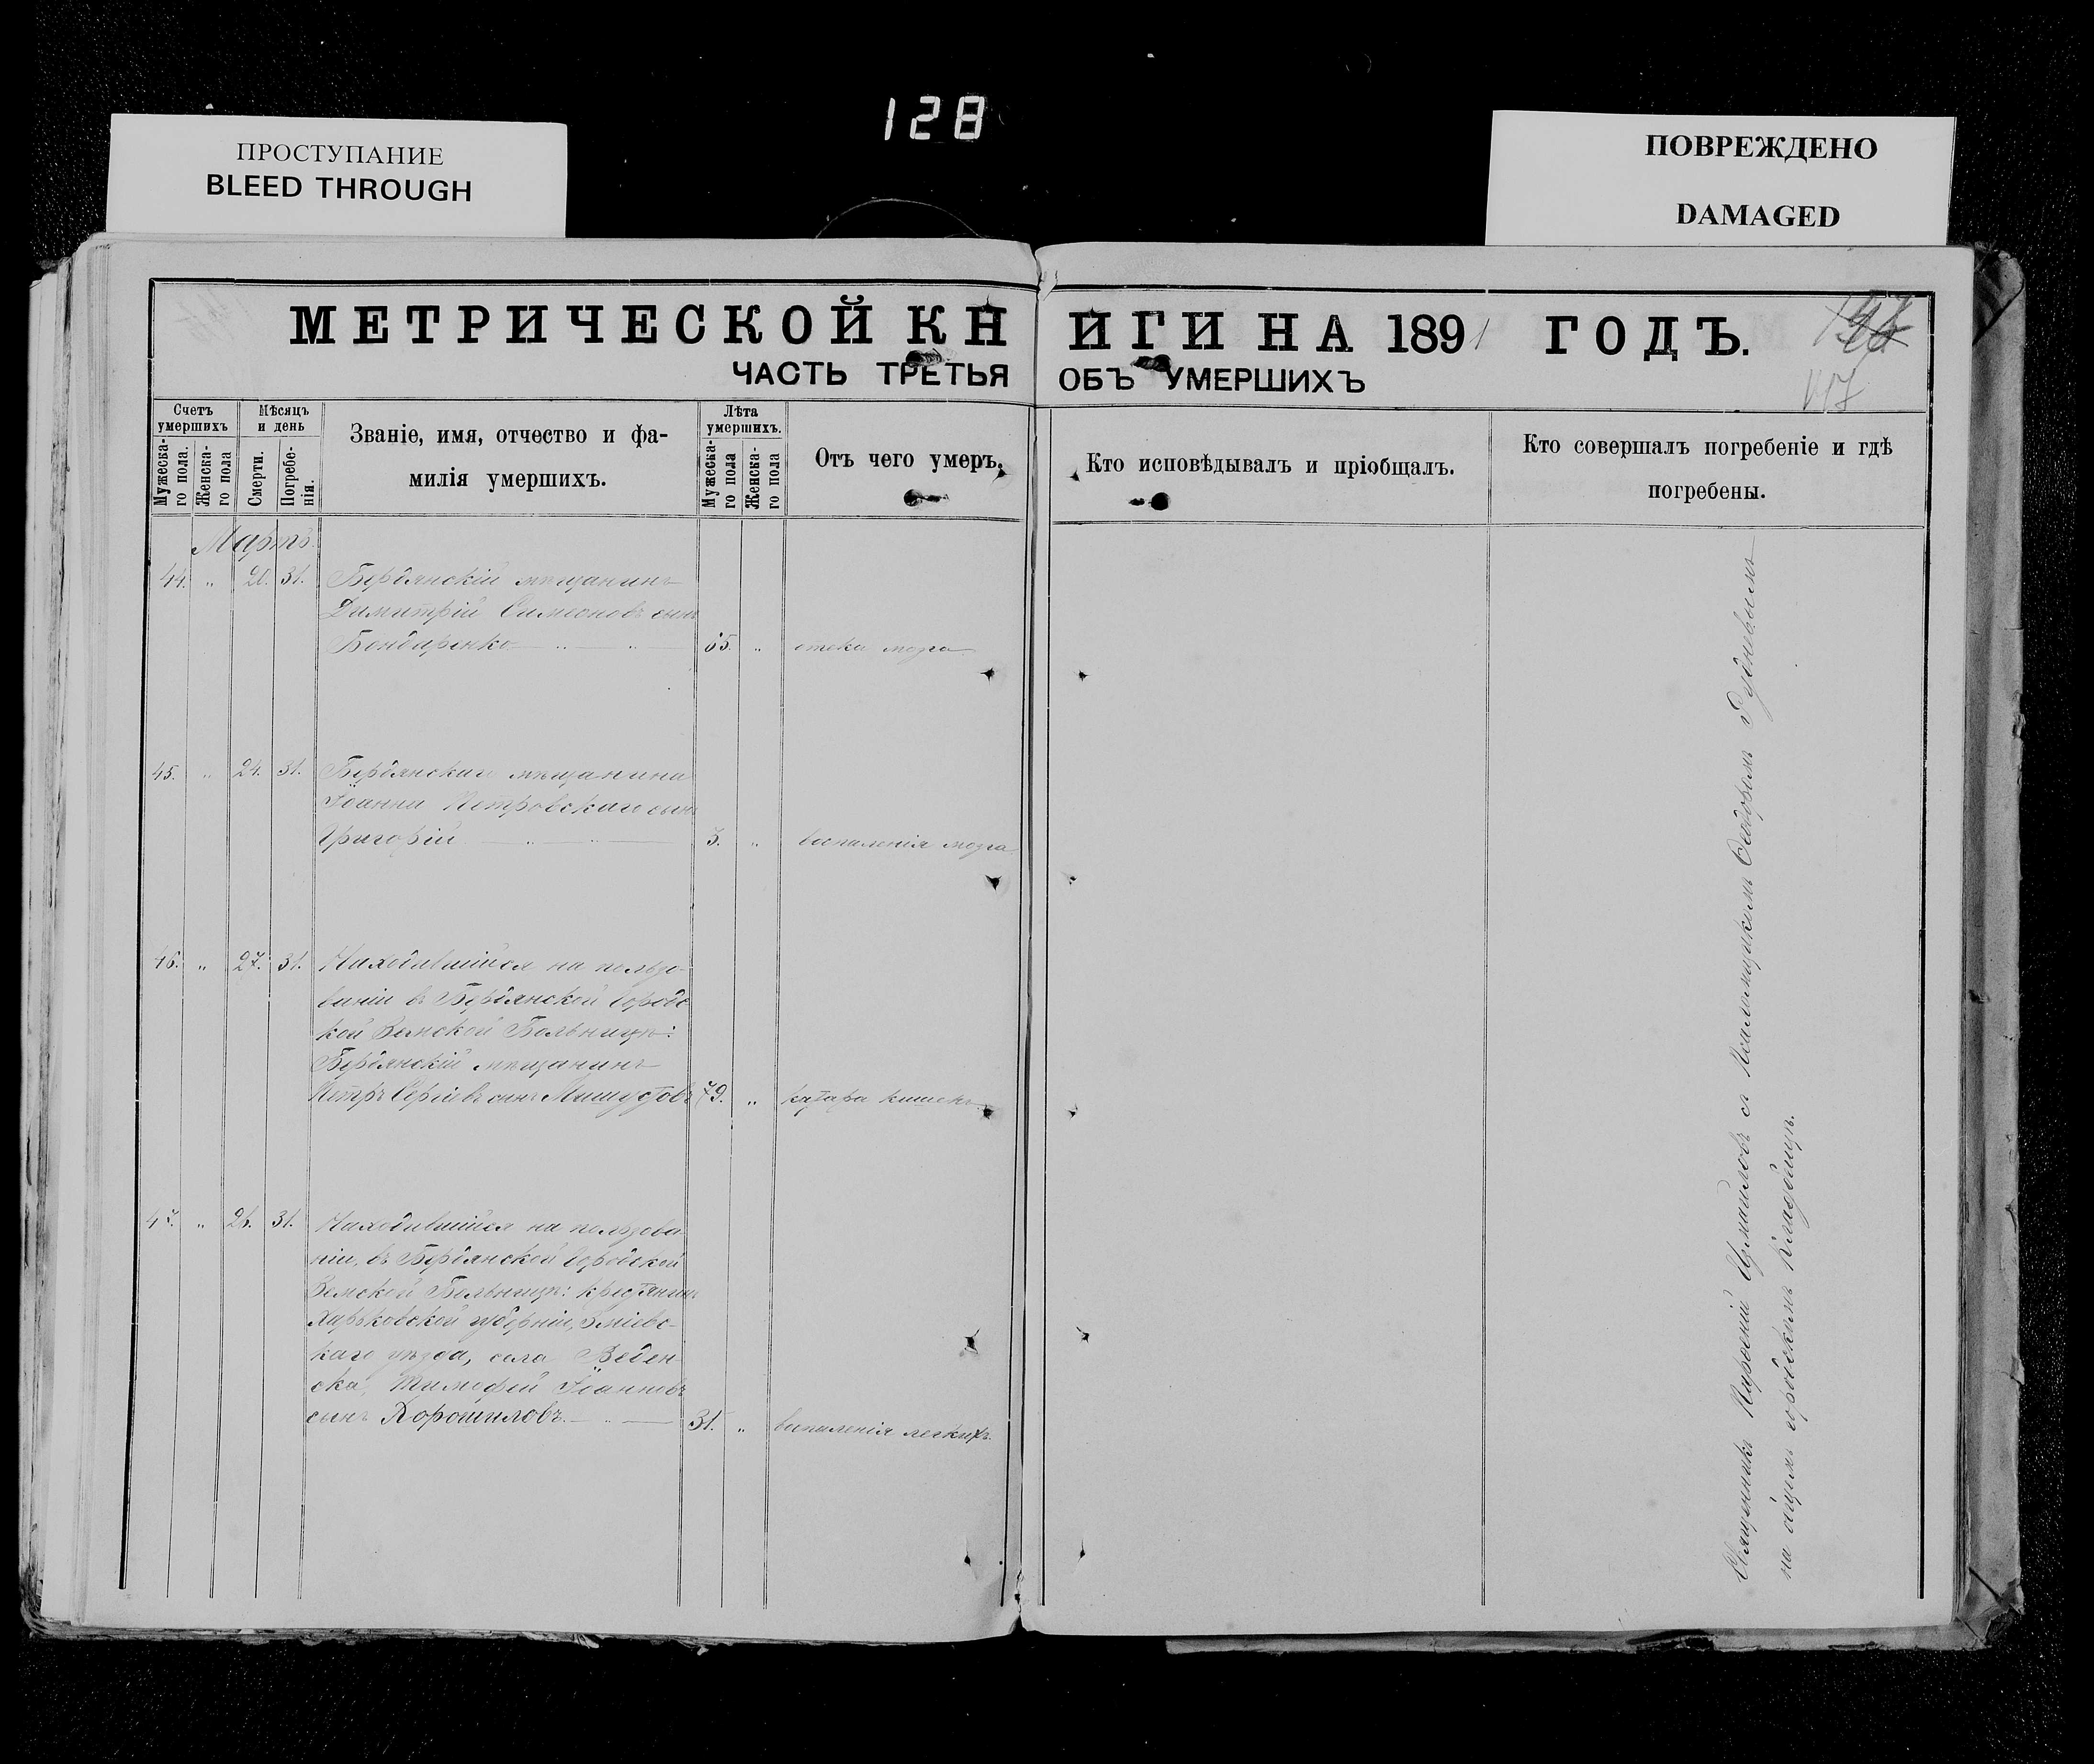 128
ПРОСТУПАНИЕ
BLEED THROUGH
ПОВРЕЖДЕНО
DAMAGED
МЕТРИЧЕСКОЙ КНИГИ НА 1891 ГОДЪ.
ЧАСТЬ ТРЕТЬЯ ОБЪ УМЕРШИХЪ
117
Счетъ умершихъ
Мужеска-го пола.
Женска-го пола
Мѣсяцъ и день
Смерти.
Погребе-нія.
Званіе, имя, отчество и фа-
милія умершихъ.
Лѣта умершихъ.
Мужеска-го пола
Женска-го пола
Отъ чего умеръ.
Кто исповѣдывалъ и пріобщалъ.
Кто совершалъ погребеніе и гдѣ
погребены.
Мартъ.
44. " 31. Бердянскій мѣщанинъ
Димитрій Симеоновъ сынъ
Бондаренко 65. " отека мозга
45. " 24. 31. Бердянскаго мѣщанина
Іоанна Петровскаго сынъ
Григорій 3. " воспаленія мозга
46. " 27. 31. Находившійся на пользо-
ваніи въ Бердянской Городс
кой Земской Больницѣ:
Бердянскій мѣщанинъ
Петръ Сергіевъ сынъ Мишустовъ 79. " катара кишекъ
47. " 31. Находившійся на пользова
ніи, въ Бердянской Городской
Земской Больницѣ: крестьянинъ
Харьковской губерніи, Зміевс-
каго уѣзда, села Веден-
ска, Тимофей Іоанновъ
сынъ Хорошиловъ 31. " воспаленія легкихъ.
Священникъ Парѳеній Измаиловъ съ Псаломщикомъ Ѳеодоромъ Рудневымъ
на общемъ городскомъ Кладбищѣ.